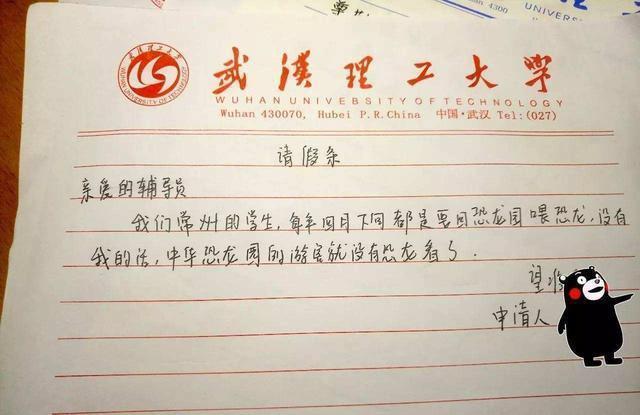 武汉理工大学
WUHAN UNIVERSITY OF TECHNOLOGY
Wuhan 430070, Hubei P.R.China 中国·武汉 Tel:(027)
请假条
亲爱的辅导员
我们常州的学生,每年四月下旬都是要回恐龙园喂恐龙,没有
我的话,中华恐龙园的游客就没有恐龙看了.
望准
申请人